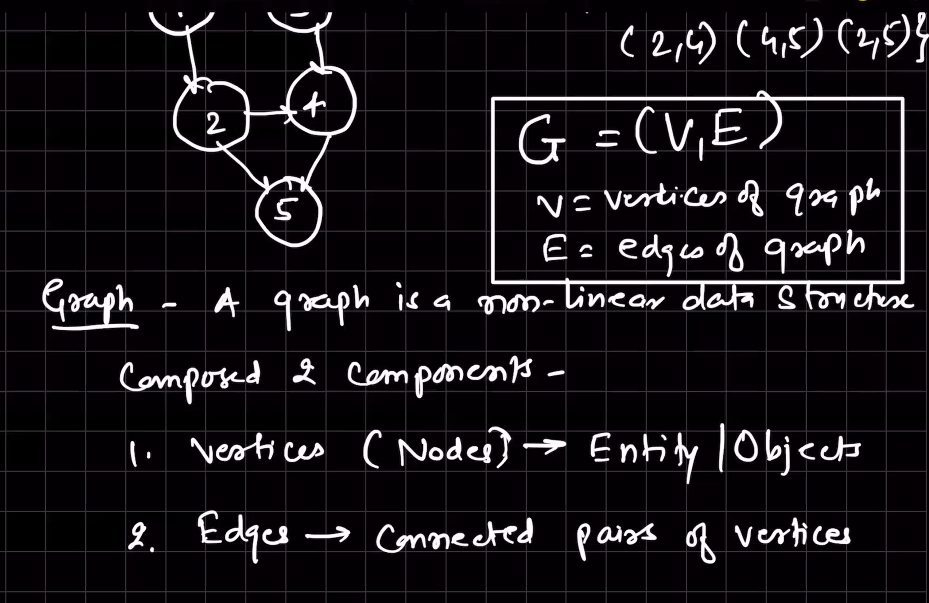 (2,4) (4,5) (2,5)}
2
4
5
G = (V,E)
V = vertices of graph
E = edges of graph
Graph - A graph is a non-linear data structure
Composed 2 components -
1. Vertices (Nodes) → Entity | Objects
2. Edges → Connected pairs of vertices